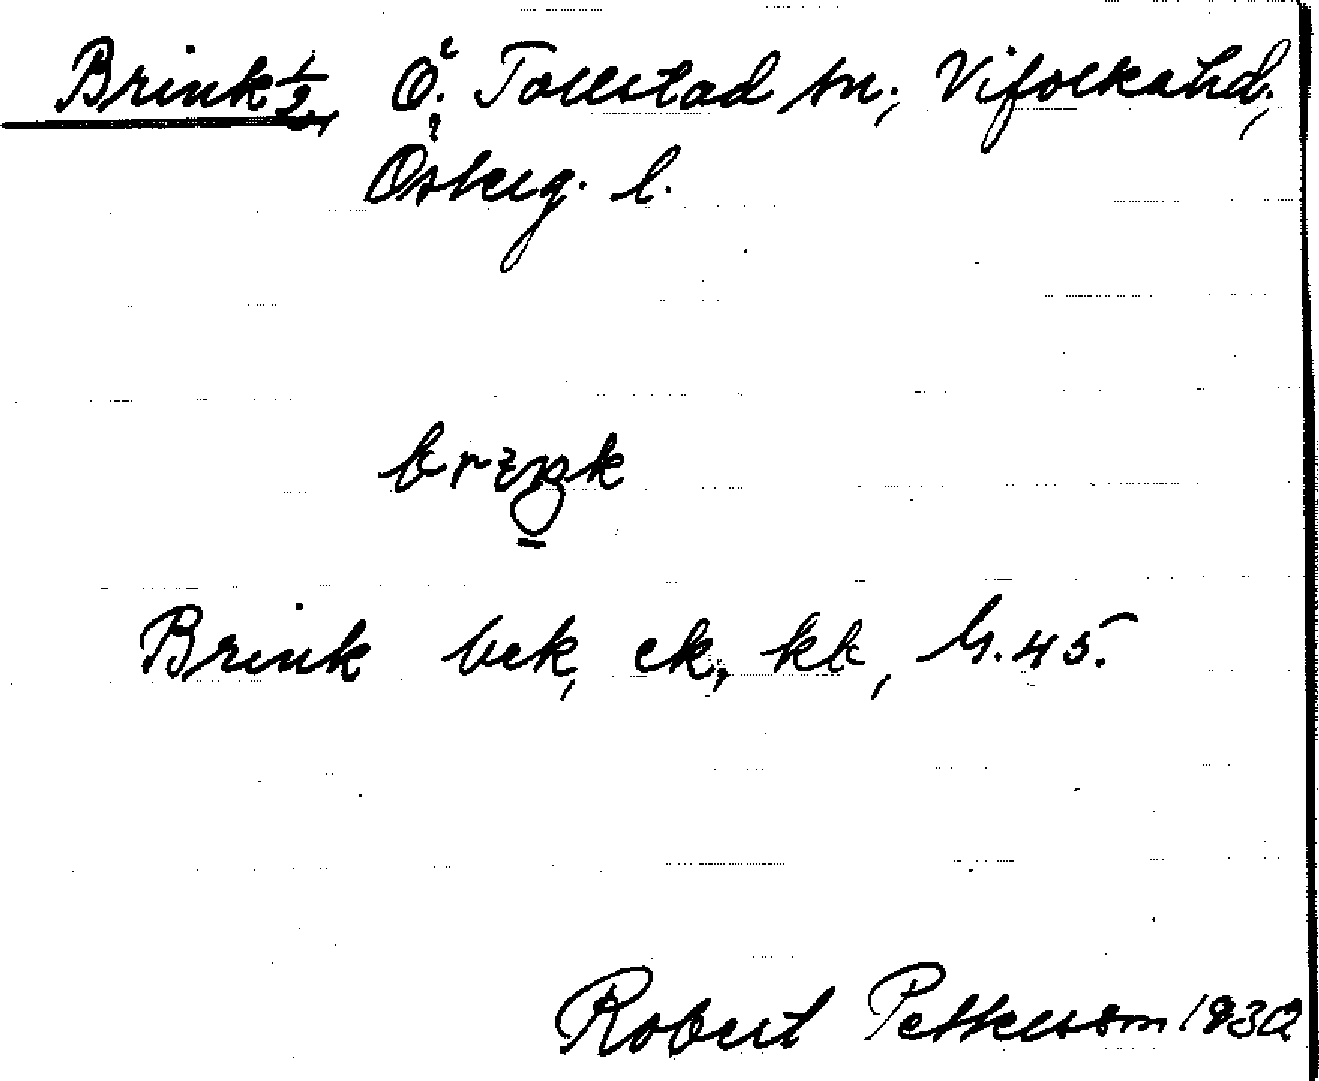 Brink ½, Ö. Tollstad sn; Vifolka hd;
Österg. l.
briŋk
Brink bek, ek, kk, h. 45.
Robert Petterson 1930